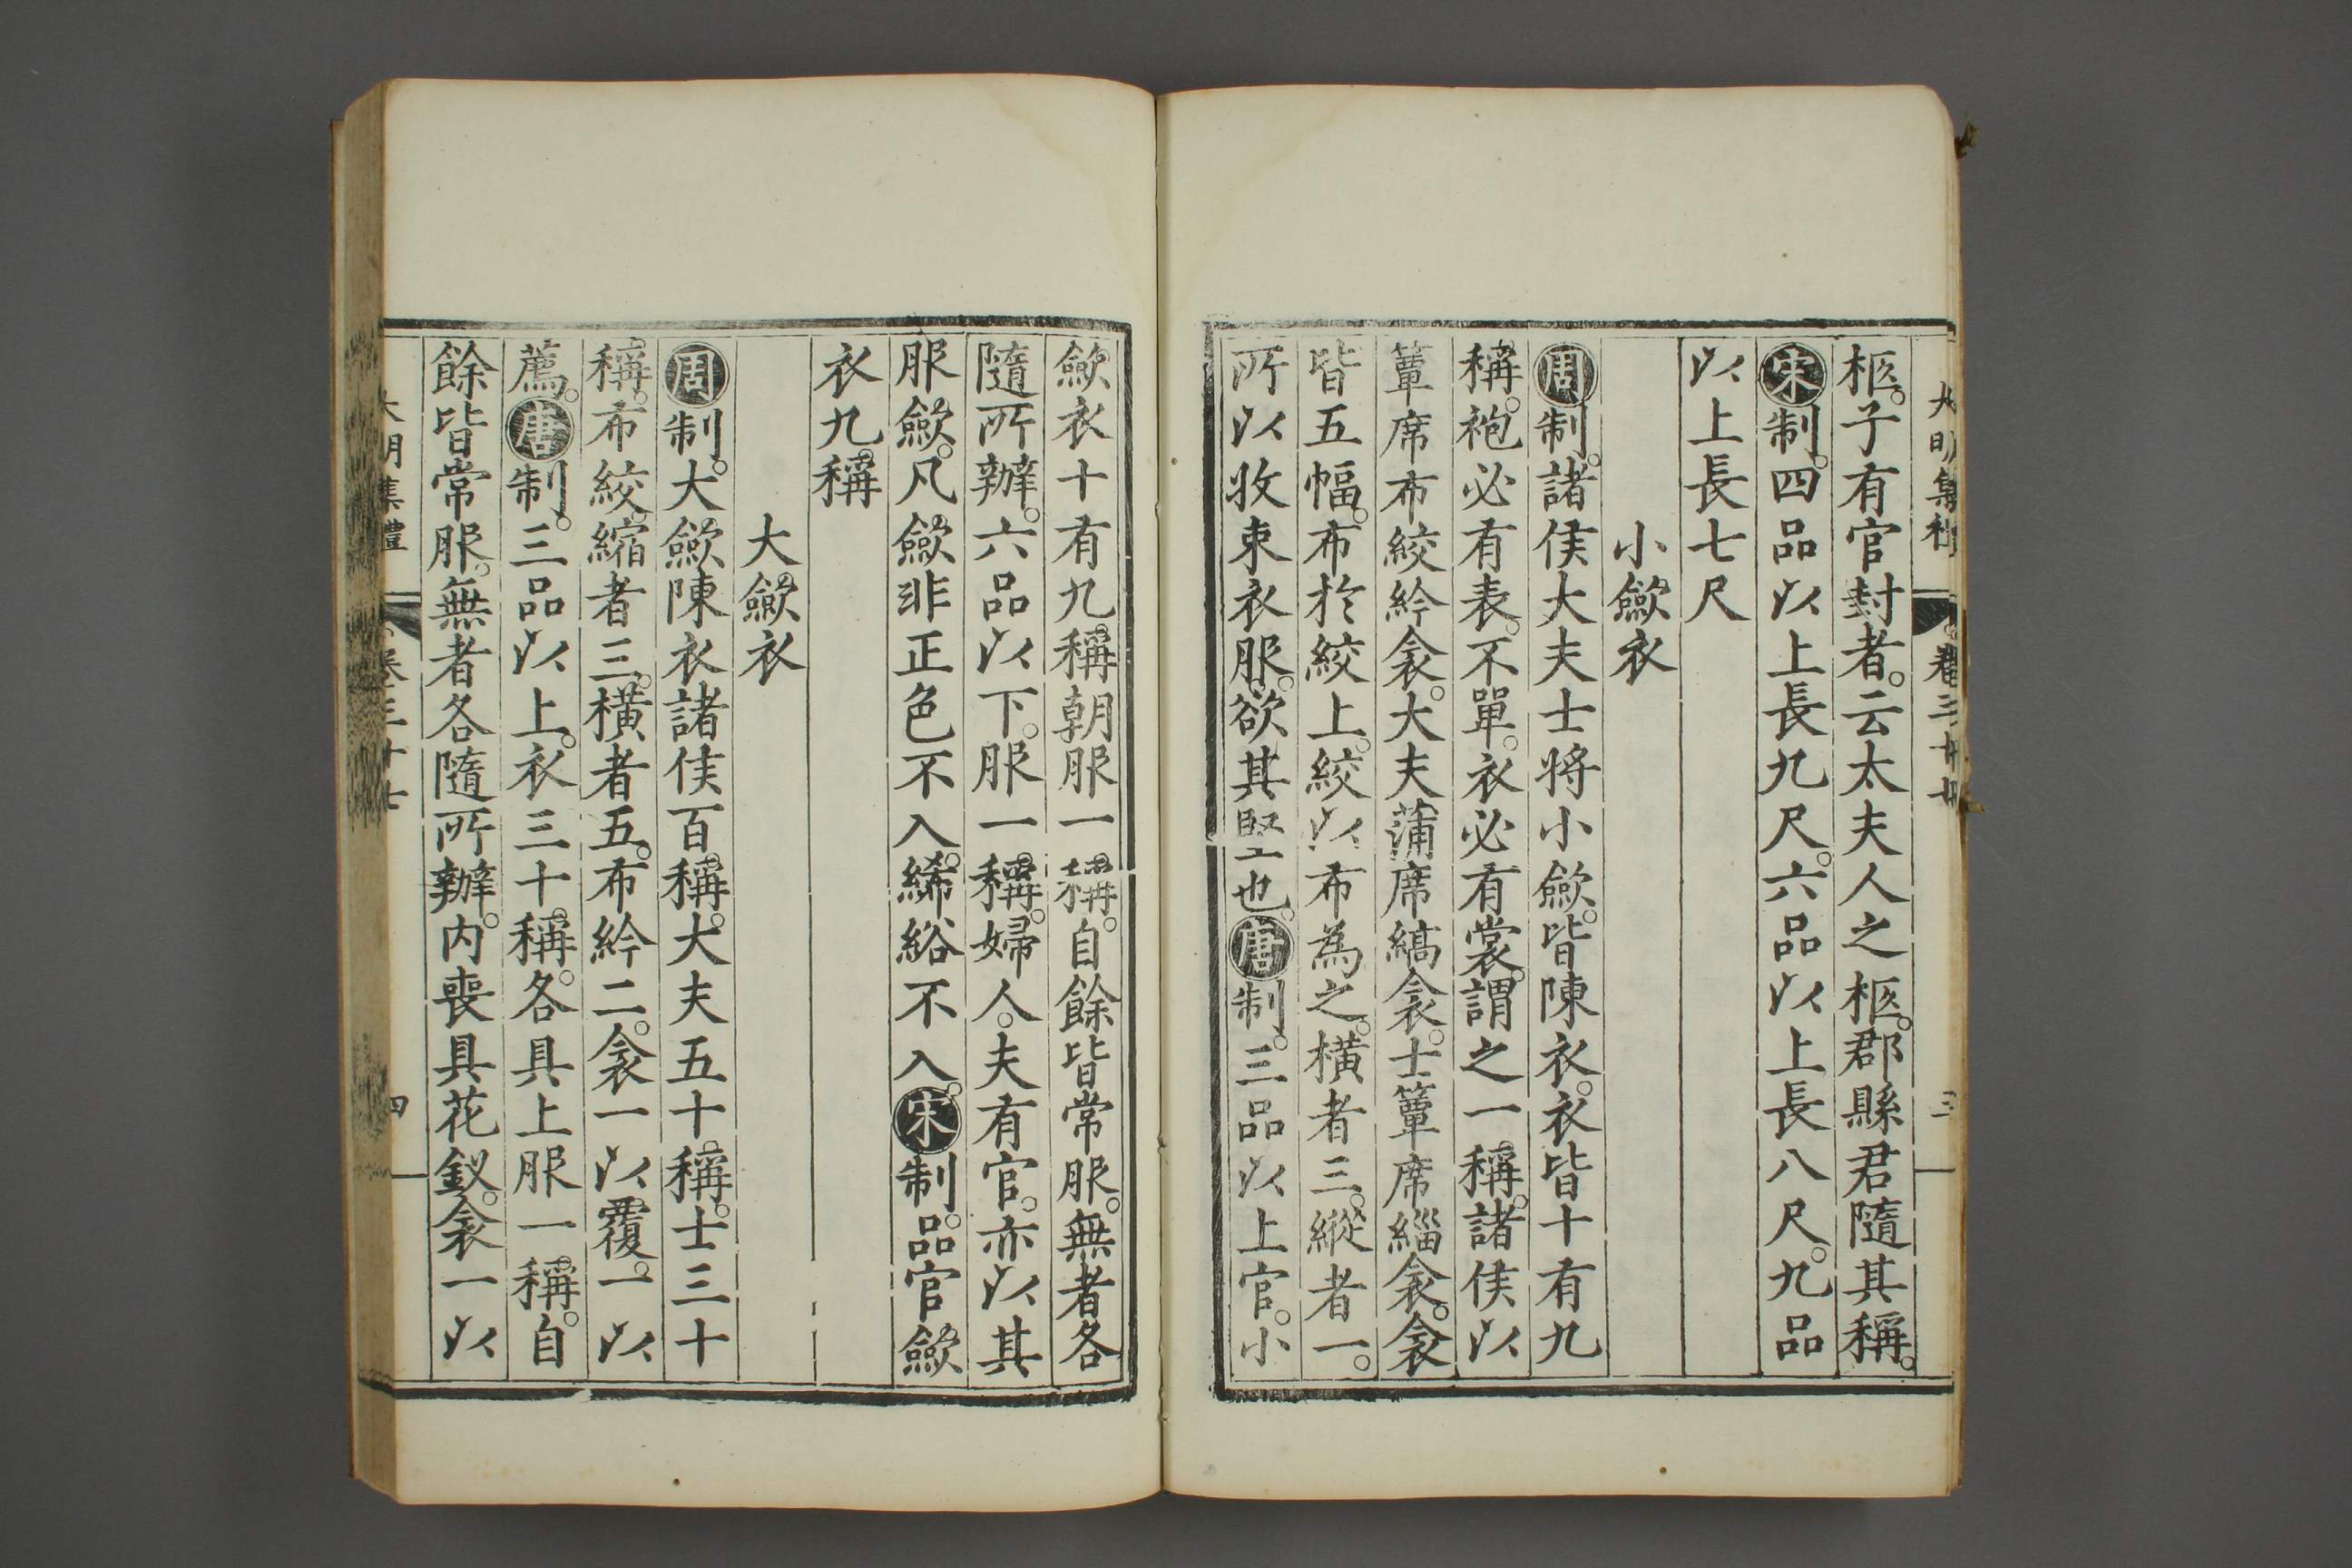 大明集禮 卷三十七 三
柩。子有官封者。云太夫人之柩。郡縣君隨其稱。
宋制。四品以上長九尺。六品以上長八尺。九品
以上長七尺
小斂衣
周制。諸侯大夫士將小斂。皆陳衣。衣皆十有九
稱。袍必有表。不單。衣必有裳。謂之一稱。諸侯以
簟席布絞紟衾。大夫蒲席縞衾。士簟席緇衾。衾
皆五幅。布於絞上。絞以布為之。橫者三。縱者一。
所以收束衣服。欲其堅也。唐制。三品以上官。小
斂衣十有九稱朝服一稱。自餘皆常服。無者各
隨所辦。六品以下。服一稱。婦人。夫有官。亦以其
服斂。凡斂非正色不入。絺綌不入。宋制。品官斂
衣九稱
大斂衣
周制。大斂陳衣諸侯百稱。大夫五十稱。士三十
稱。布絞。縮者三。橫者五。布紟二。衾一以覆。一以
薦。唐制。三品以上。衣三十稱。各具上服一稱。自
餘皆常服。無者各隨所辦。内喪具花釵。衾一以
大明集禮 卷三十七 四